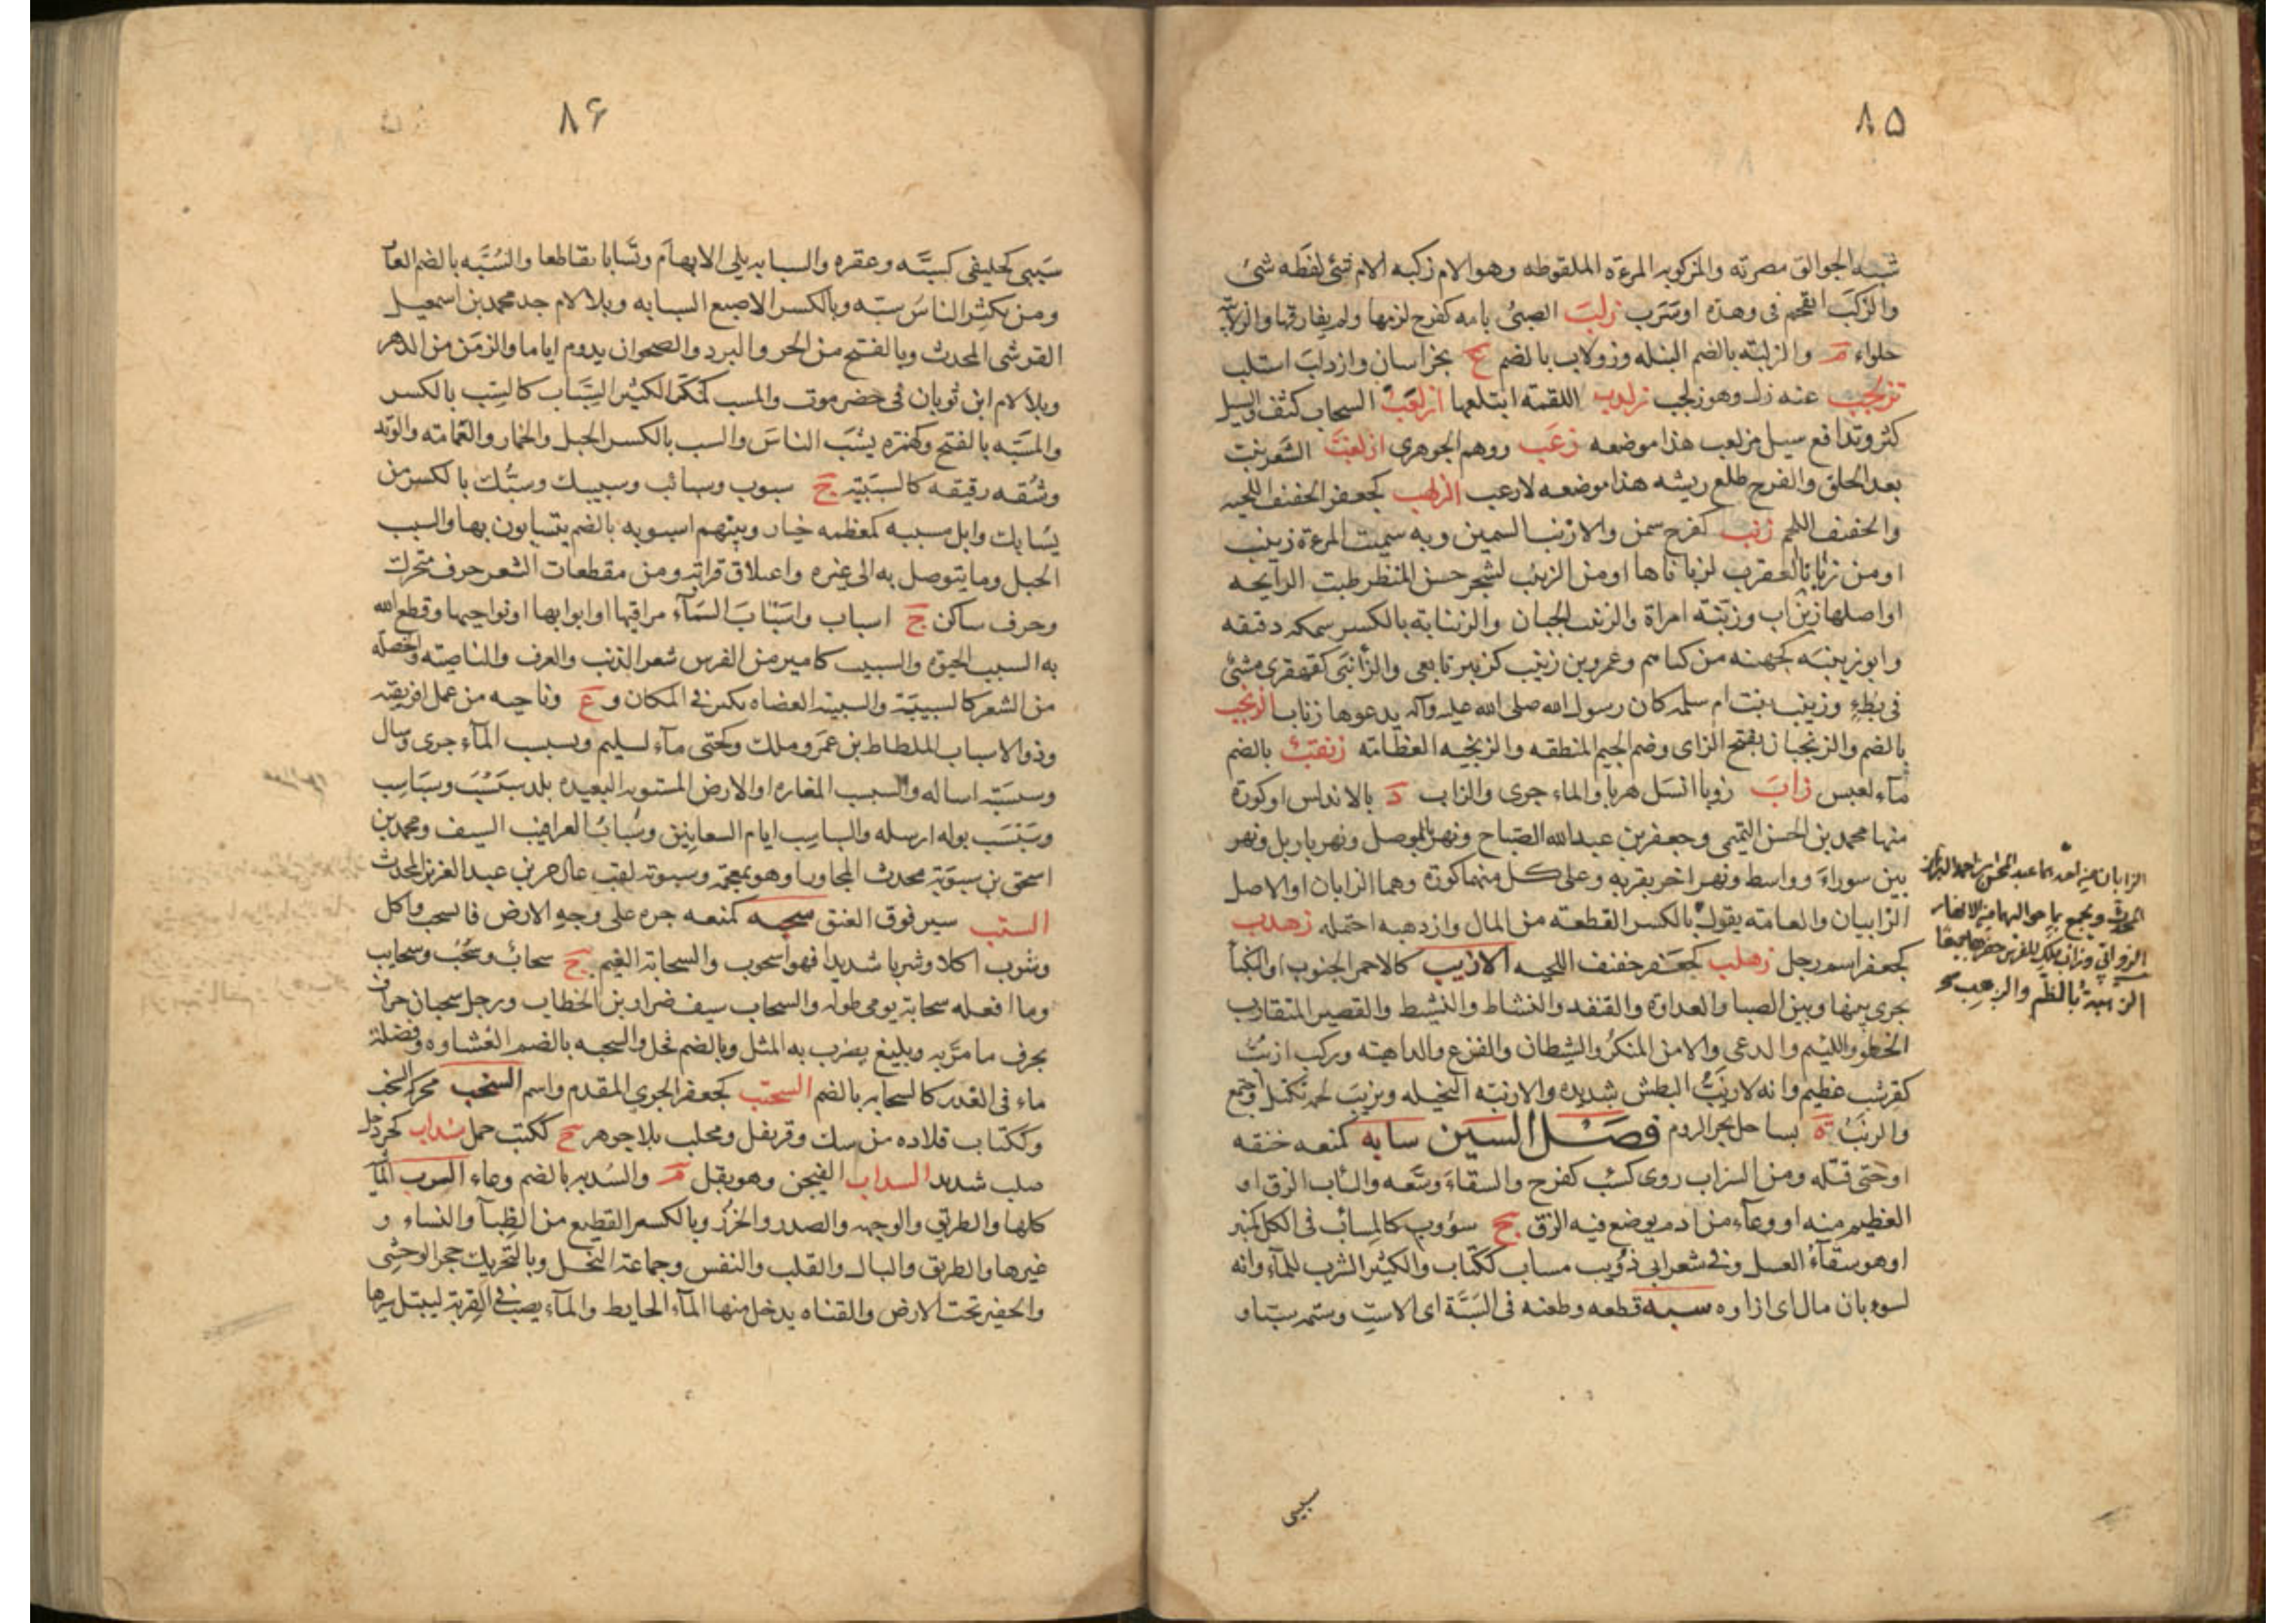 ۸۵
شبه الجوالق مصرته والمزكوبه المرءة الملقوطه وهو الام زكبه الام شئ لفظه شئ
والزكب القحم فى وهدة او سرب زلب الصبى بامه كفرح لزمها ولم يفارقها والزلابية
حلواء م والزلبة بالضم النبله وزولاب بالضم ع بخراسان وازدلب استلب
تزلجب عنه زل وهو زلجب زلدب اللقمة ابتلعها ازلعب السحاب كثف والسيل
كثر وتدافع سيل مزلعب هذا موضعه زعب ووهم الجوهرى ازلغب الشعر نبت
بعد الحلق والفرخ طلع ريشه هذا موضعه لا زغب الزلهب كجعفر الخفيف اللحيه
والخفيف اللحم زنب كفرح سمن والازنب السمين وبه سميت المرءة زينب
او من زنابا العقرب لزباناها او من الزينب لشجر حسن المنظر طيب الرايحه
او اصلها زين اب وزينة امراة والزينب الجبان والزنابة بالكسر سمكه دقيقه
وابو زنيبه كجهينه من كناهم وعمرو بن زنيب كزبير تابعى والزأنبى كقهقرى مشى
فى بطء وزينب بنت ام سلمه كان رسول الله صلى الله عليه وآله يدعوها زناب الزنجب
بالضم والزنجبان بفتح الزاى وضم الجيم المنطقه والزنجبه العظامة زنقب بالضم
مآء لعبس زاب زوبا انسل هربا والماء جرى والزاب د بالاندلس او كورة
منها محمد بن الحسن التميمى وجعفر بن عبدالله الصباح ونهر بالموصل ونهر باربل ونهر
بين سوراء وواسط ونهر اخر بقربه وعلى كل منهما كورة وهما الزابان او الاصل
الزابيان والعامة يقول بالكسر القطعة من المال وازدهبه احتمله زهدب
كجعفر اسم رجل زهلب كجعفر خفيف اللحيه الازيب كالاحمر الجنوب او النكبا
تجرى بينها وبين الصبا والعداوة والقنفد والنشاط والنشيط والقصير المتقارب
الخطو واللئيم والدعى والامر المنكر والشيطان والفزع والداهية وركب ازيب
كقرشب عظيم وانه لازيب البطش شديده والازيبة البخيله وتزيب لحمه تكتل واجتمع
والزيب ة بساحل بحر الروم فصل السين سابه كمنعه خنقه
او حتى قتله ومن الشراب روى كسئب كفرح والسقاء وسعه والسأب الزق او
العظيم منه او وعآء من ادم يوضع فيه الزق ج سؤوب كالمسأب فى الكل كمنبر
او هو سقآء العسل وفى شعر ابى ذؤيب مساب ككتاب والكثير الشرب للمآء وانه
لسوءبان مال اى ازاوه سبه قطعه وطعنه فى السبة اى الاست وشتمه سبا و
سبيى
الزابان
المحدث ويجمع بما حواليهما من الانهار
الزوابى وزاب ملك للفرس حفرها جميعا
۸۶
سبيبى كخليفى كسببه وعقره والسبابه يلى الابهام وتسابا تقاطعا والسبه بالضم العار
ومن يكثر الناس سبه وبالكسر الاصبع السبابه وبلا لام جد محمد بن اسمعيل
القرشى المحدث وبالفتح من الحر والبرد والصحو ان يدوم اياما والزمن من الدهر
وبلا لام ابن ثوبان فى حضرموت والمسب كمكر الكثير السباب كالسب بالكسر
والمسبه بالفتح وكهمزه يسب الناس والسب بالكسر الحبل والخمار والعمامة والوتد
وشقه رقيقه كالسبيبة ج سبوب وسبائب وسبيبك وسبك بالكسر من
يسابك وابل مسببه كمعظمه خيار وبينهم اسبوبه بالضم يتسابون بها والسبب
الحبل وما يتوصل به الى غيره واعتلاق قرابة ومن مقطعات الشعر حرف متحرك
وحرف ساكن ج اسباب واسباب السمآء مراقيها او ابوابها او نواحيها وقطع الله
به السبب الحيوة والسبيب كامير من الفرس شعر الذنب والعرف والناصية والخصله
من الشعر كالسبيبة والسبيبة العضاه تكثر فى المكان و ع وناحيه من عمل افريقية
وذو الاسباب الملطاط بن عمرو ملك وكحتى مآء لسليم وتسبسب المآء جرى وسال
وسبسبة اساله والسبسب المفازه او الارض المستويه البعيده بلد سبسب وسباسب
وسبسب بوله ارسله والسباسب ايام السعانين وسباب العراقيب السيف ومحمد بن
اسحق بن سبوبة محدث المجاور او هو بمعجمة وسبوبة لقب عبدالرحمن بن عبد العزيز المحدث
السبتب سير فوق العنق سحبه كمنعه جره على وجه الارض فانسحب واكل
وشرب اكلا وشربا شديدا فهو اسحوب والسحابة الغيم ج سحاب وسحب وسحايب
وما افعله سحابة يومى طوله والسحاب سيف ضرار بن الخطاب ورجل سحبان جراف
يجرف ما مر به وبليغ يضرب به المثل وبالضم فحل والسحبه بالضم الغشاوه وفضلة
ماء فى الغدير كالسحابه بالضم السحتب كجعفر الجرى المقدم واسم السخب محركه الصخب
وككتاب قلاده من سك وقرنفل ومحلب بلا جوهر ج ككتب جمل سنداب كجردحل
صلب شديد السداب الفيجن وهو بقل م والسدبه بالضم وعاء السرب المآل
كلها والطريق والوجهه والصدر والخرز وبالكسر القطيع من الظبآ والنساء و
غيرها والطريق والبال والقلب والنفس وجماعة النخل وبالتحريك جحر الوحشى
والحفير تحت الارض والقناه يدخل منها المآء الحايط والمآء يصب فى القربة ليبتل سيرها